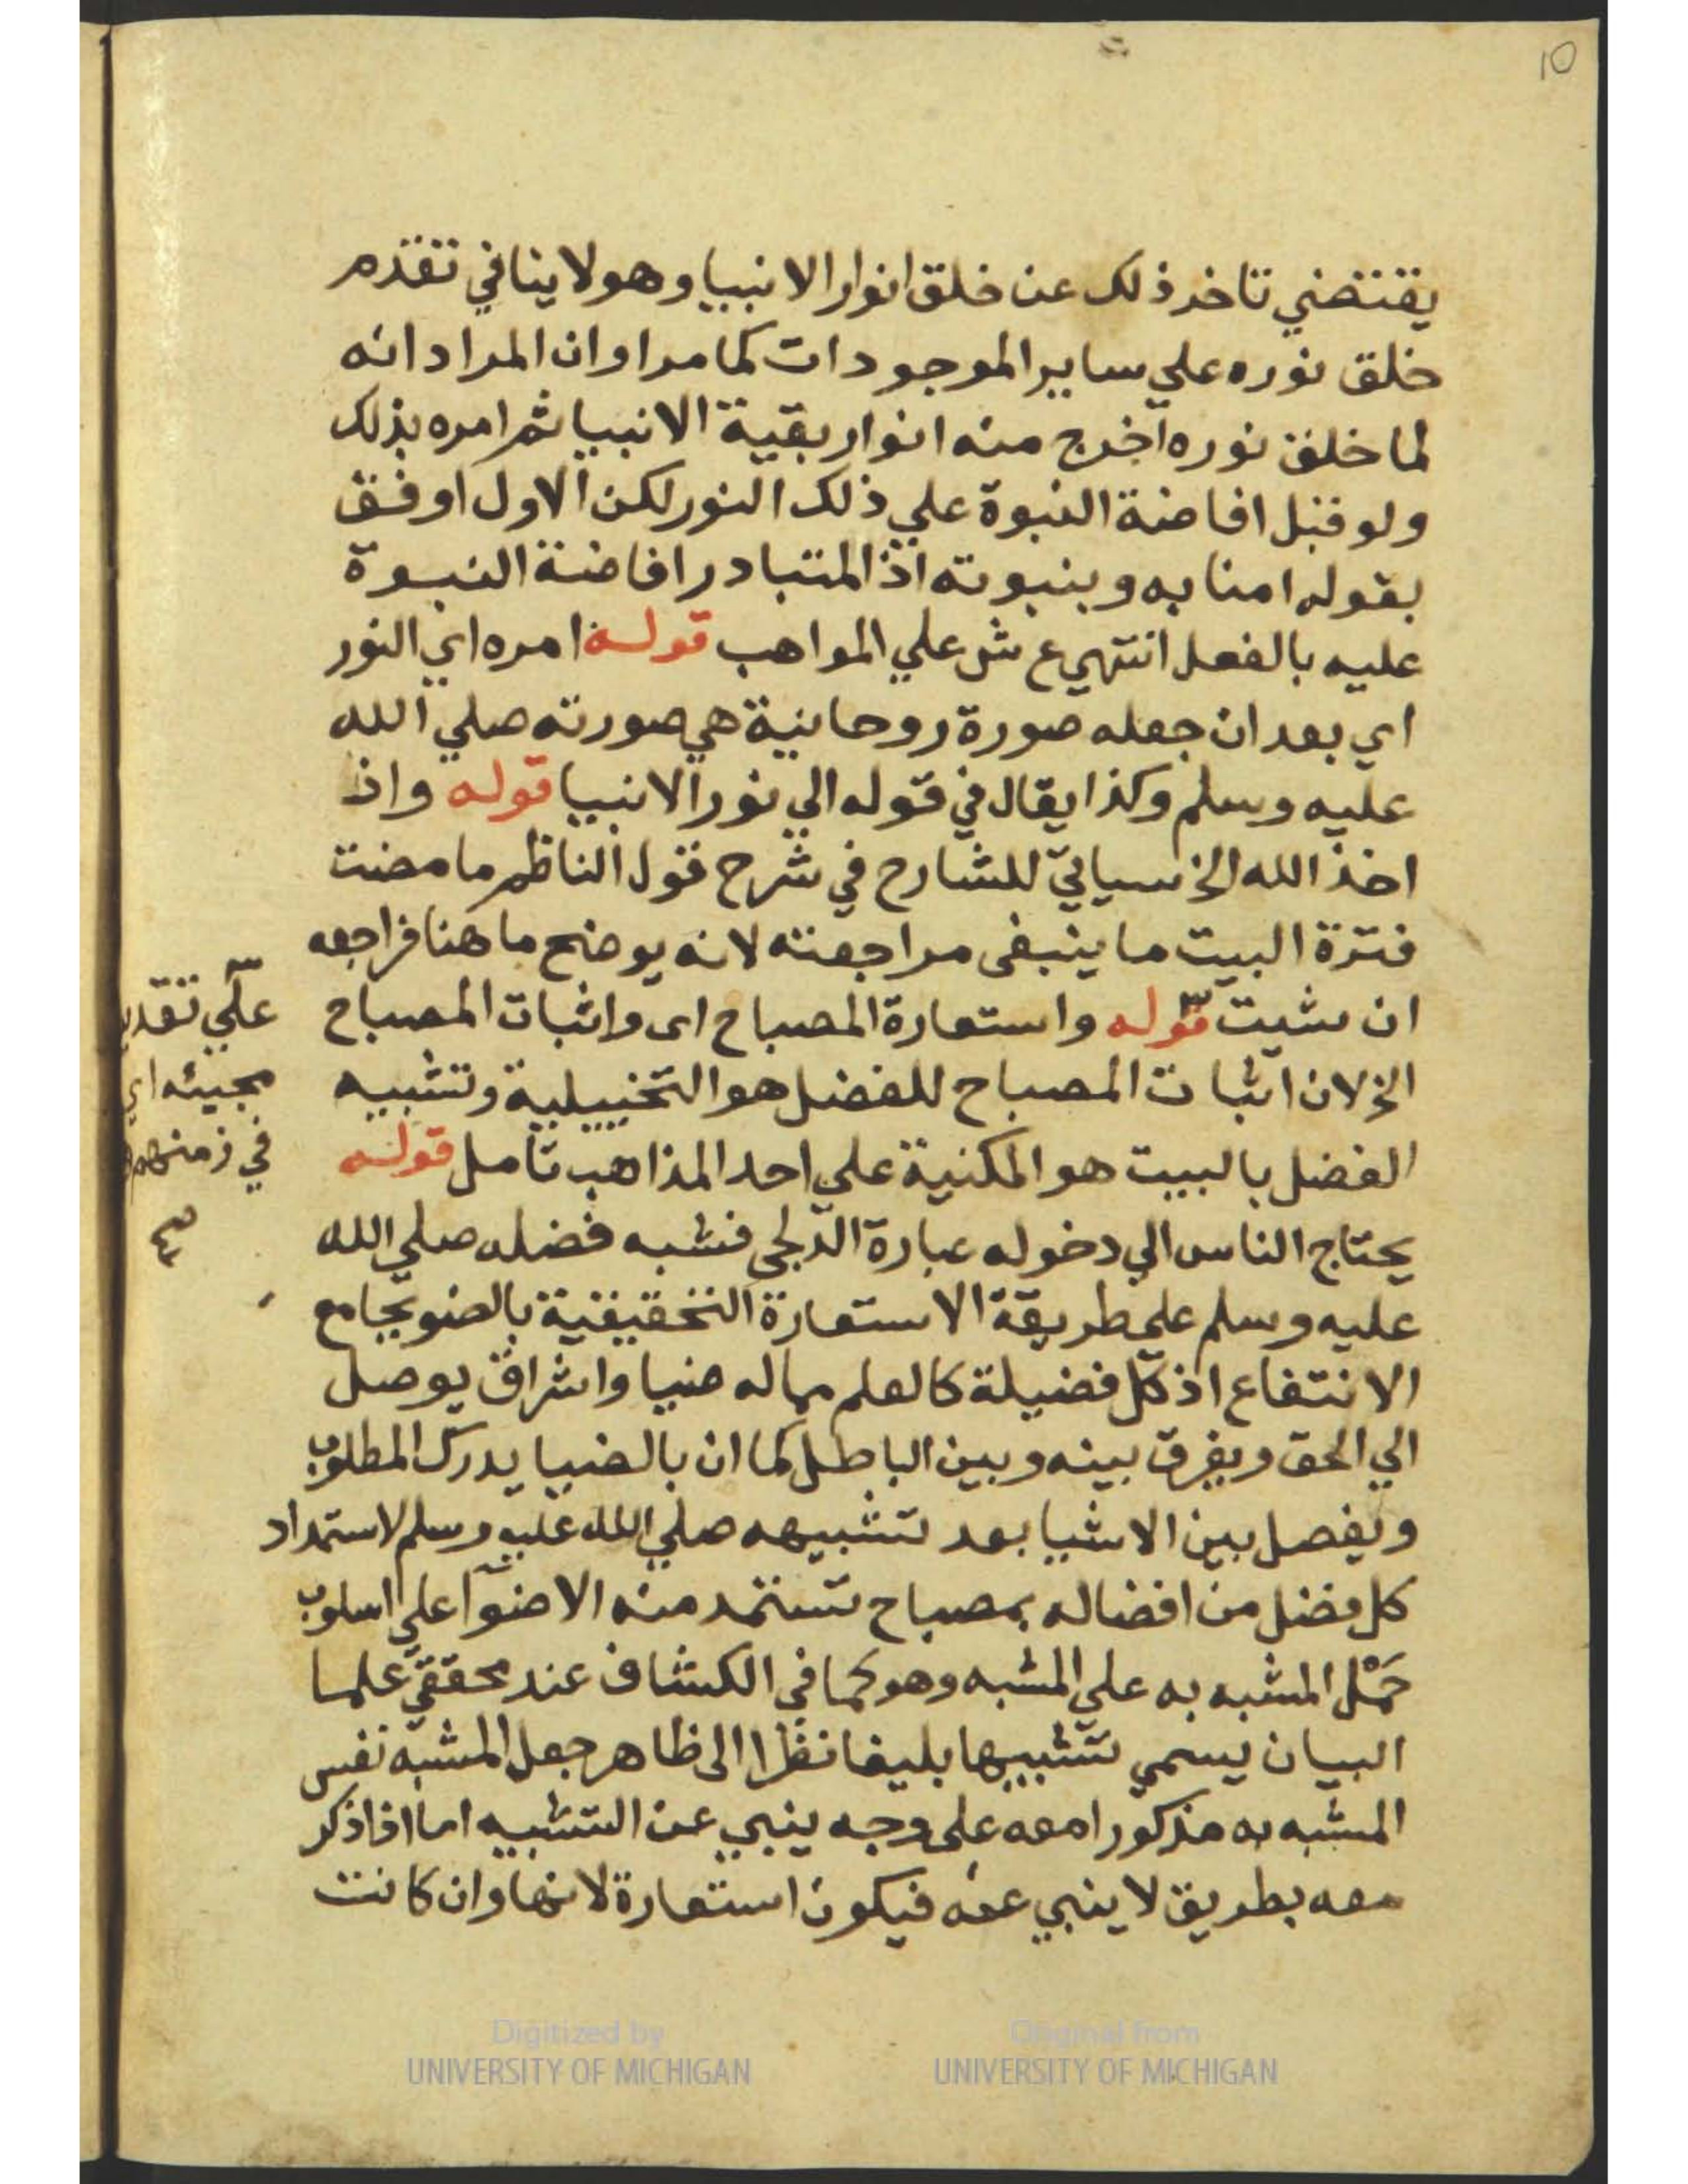 10
يقتضي تاخر ذلك عن خلق انوار الانبيا وهو لا ينافي تقدم
خلق نوره علي ساير الموجودات كما مر او ان المراد انه
لما خلق نوره اخرج منه انوار بقية الانبيا ثم امره بذلك
ولو قبل افاضة النبوة علي ذلك النور لكن الاول اوفق
بقوله امنا به وبنبوته اذ المتبادر افاضة النبوة
عليه بالفعل انتهي ع ش علي المواهب قوله امره اي النور
اي بعد ان جعله صورة روحانية هي صورته صلي الله
عليه وسلم وكذا يقال في قوله الي نور الانبيا قوله واذ
اخذ الله الخ سياتي للشارح في شرح قول الناظم ما مضت
فترة البيت ما ينبغى مراجعته لانه يوضح ما هنا فراجعه
ان شيت قوله واستعارة المصباح اى واثبات المصباح
الخ لان اثبات المصباح للفضل هو التخييلية وتشبيه
الفضل بالبيت هو المكنية علي احد المذاهب تامل قوله
يحتاج الناس الي دخوله عبارة الدلجى فشبه فضله صلي الله
عليه وسلم علي طريقة الاستعارة التحقيقية بالضو بجامع
الانتفاع اذ كل فضيلة كالعلم مماله ضيا واشراق يوصل
الي الحق ويفرق بينه وبين الباطل كما ان بالضيا يدرك المطلوب
ويفصل بين الاشيا بعد تشبيهه صلي الله عليه وسلم لاستمداد
كل فضل من افضاله بمصباح تستمد منه الاضوآ علي اسلوب
حَمْل المشبه به علي المشبه وهو كما في الكشاف عند محققيّ علما
البيان يسمي تشبيها بليغا نظرا الى ظاهر جعل المشبه نفس
المشبه به مذكورا معه على وجه ينبي عن التشبيه اما اذا ذكر
معه بطريق لا ينبي عنه فيكون استعارة لانها وان كانت
علي تقدير
مجيئه اي
في زمنهم
صح
Digitized by
UNIVERSITY OF MICHIGAN
Original from
UNIVERSITY OF MICHIGAN